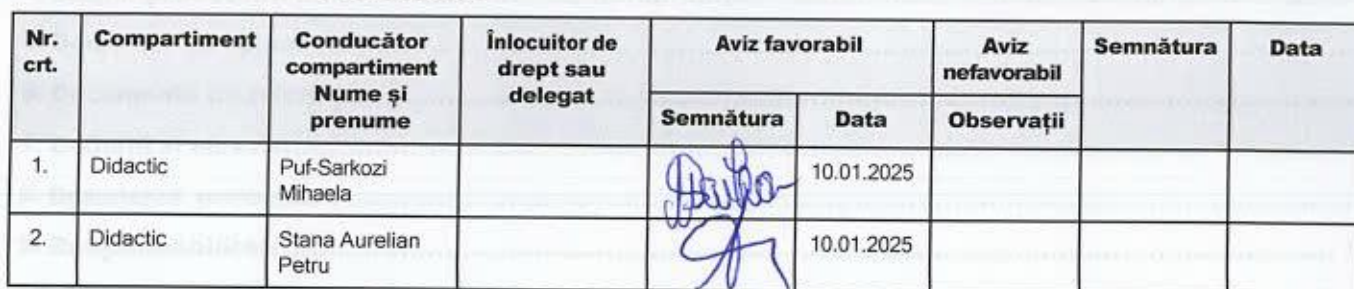 Nr. crt. Compartiment Conducător compartiment Nume și prenume Înlocuitor de drept sau delegat Aviz favorabil Aviz nefavorabil Semnătura Data
Semnătura Data Observații
1. Didactic Puf-Sarkozi Mihaela 10.01.2025
2. Didactic Stana Aurelian Petru 10.01.2025